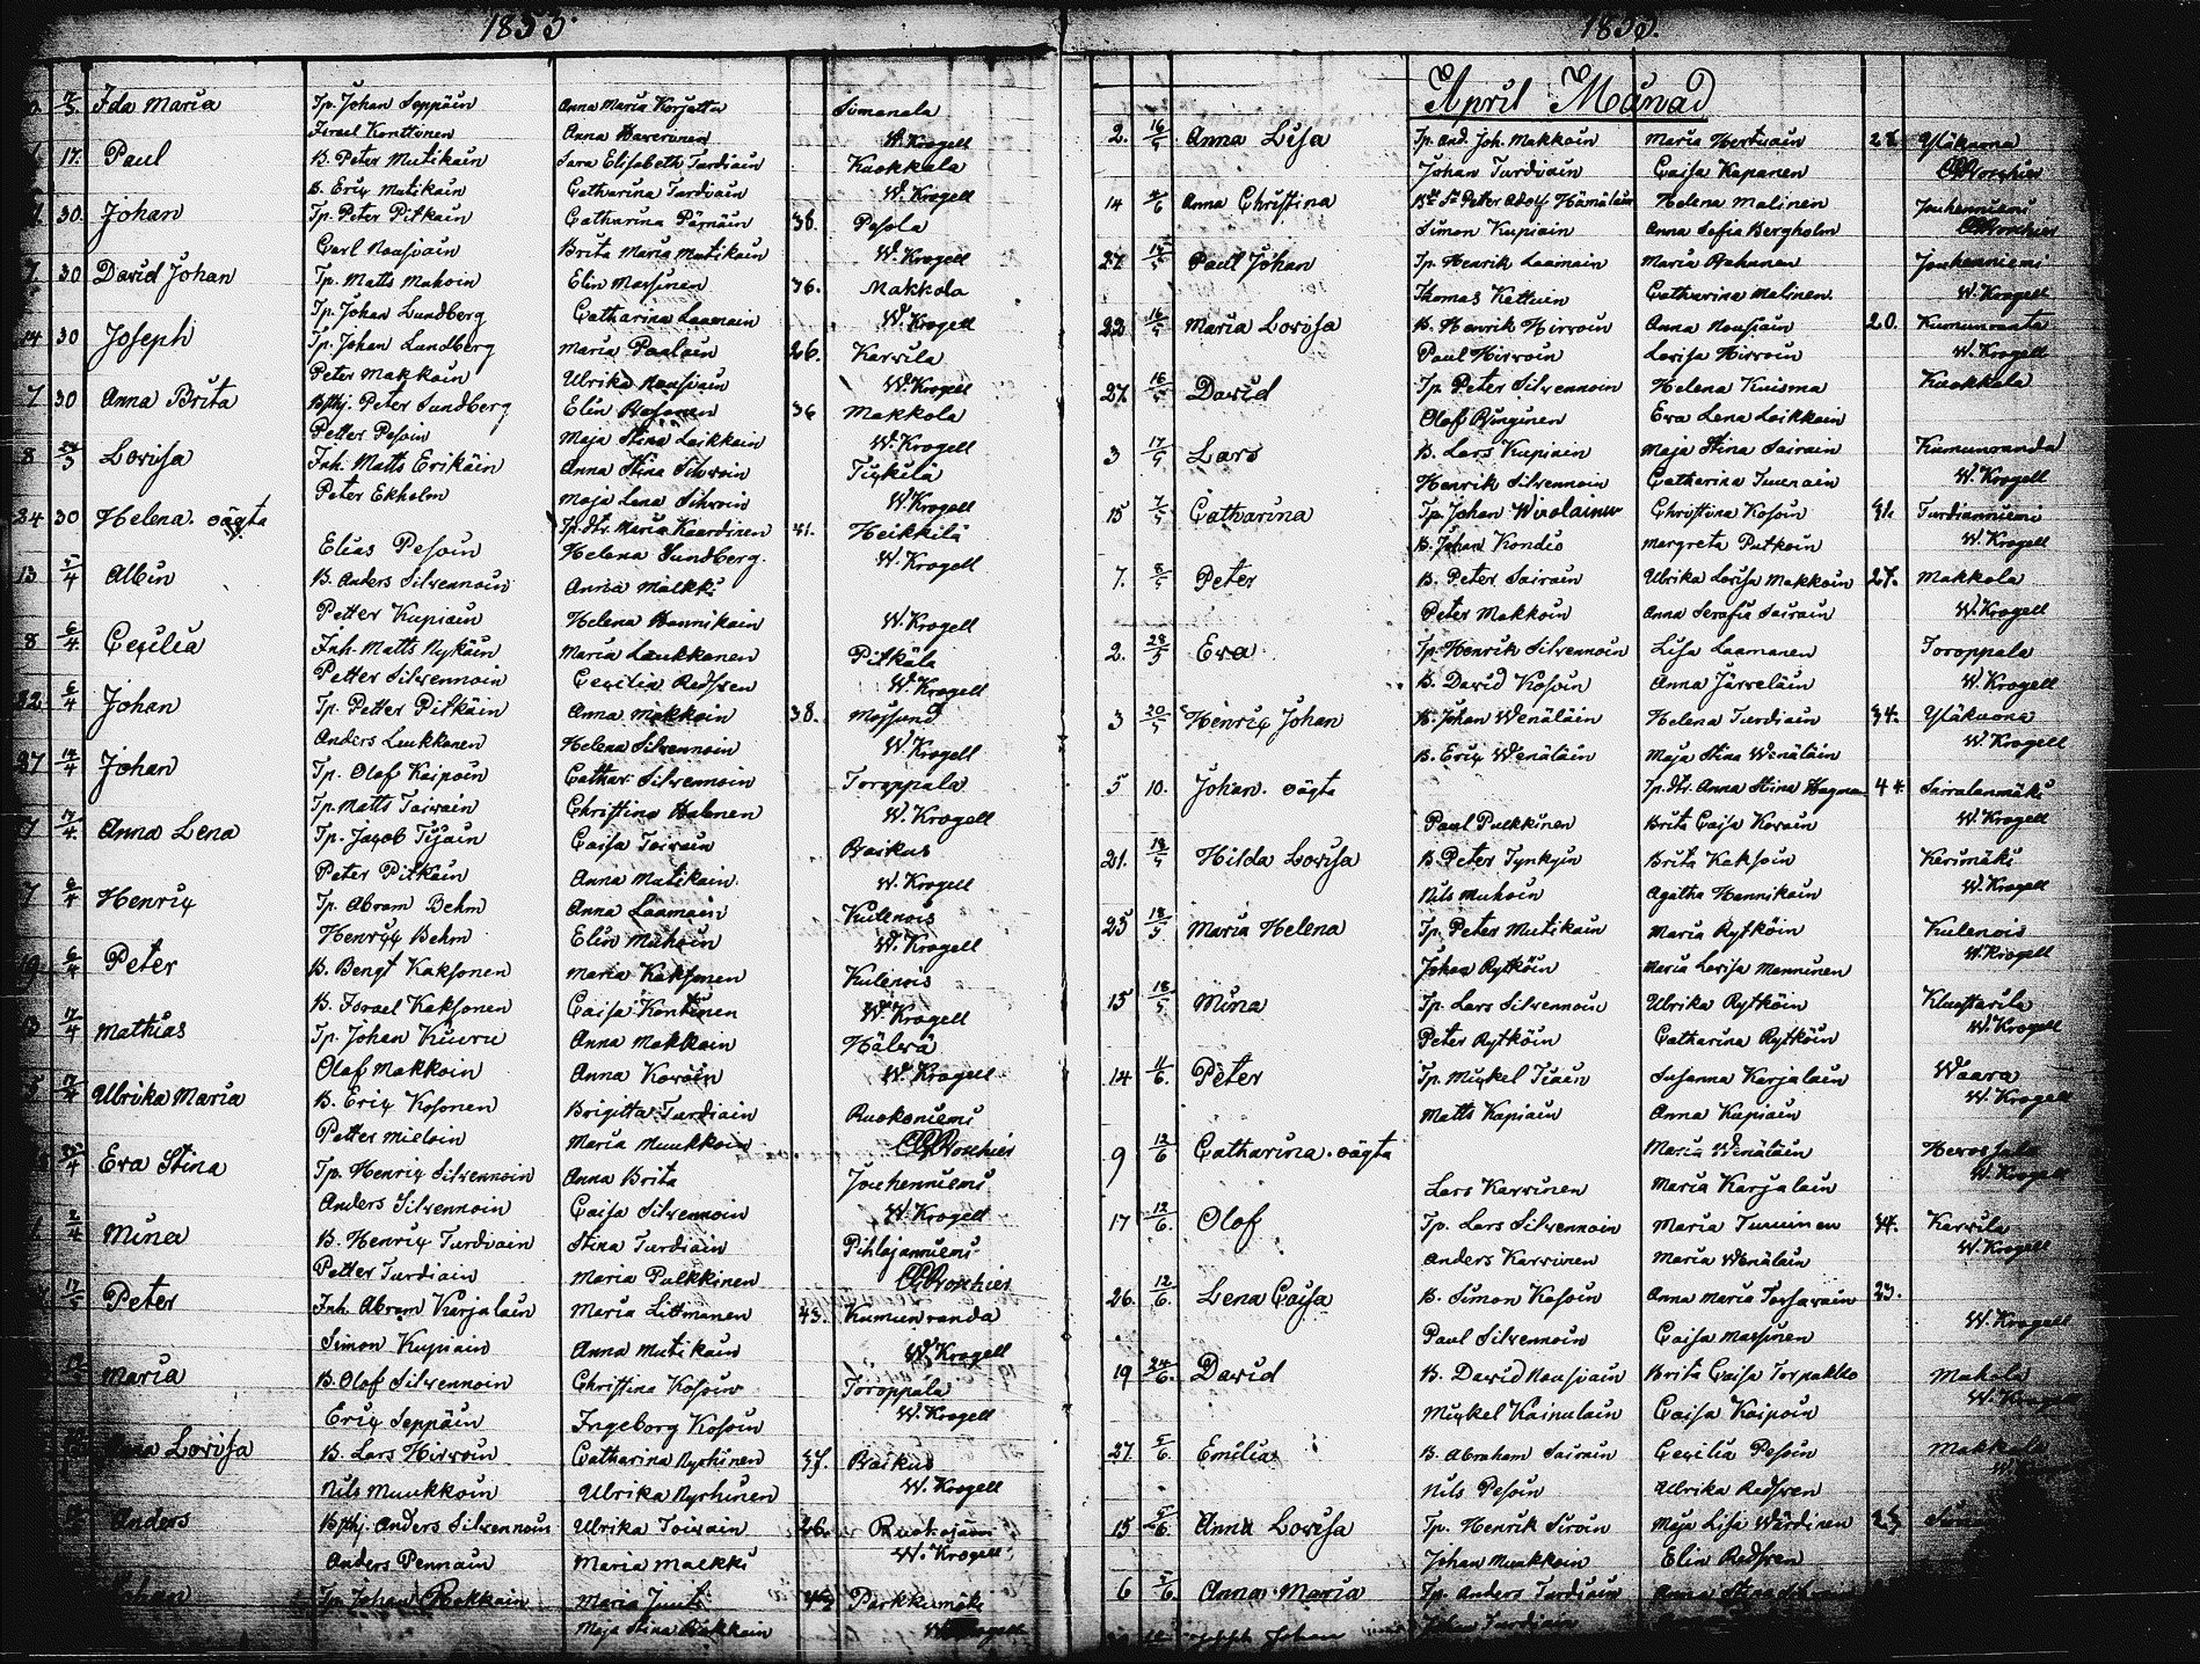 1853.
Ida Maria Tp. Johan Seppäin Anna Maria Korjattu Simanala
Israel Konttinen Anna W. Krogell
17. Paul B. Peter Mutikain Sara Elisabeth Turdiain Kuokkala
B. Eriç Mutikain Catharina Turdiain W. Krogell
30. Johan Tp. Peter Pitkäin Catharina Pärnäin 38. Pesola
Carl Nousiain Brita Maria Mutikain W. Krogell
7. 30 David Johan Tp. Matts Muhoin Elin Massinen 36. Makkola
Tp. Johan Lundberg Catharina Laamain W. Krogell
14 30 Joseph Tp. Johan Lundberg Maria Paalain 26. Karvila
Peter Makkoin Ulrika Nousiain W. Krogell
7 30 Anna Brita Bsthj. Peter Sundberg Elin 36 Makkola
Petter Pesoin Maja Stina Laikkain W. Krogell
8 24/3 Lovisa Inh. Matts Erikäin Anna Stina Sihvoin Tiykilä
Peter Ekholm Maja Lena Sihvoin W. Krogell
24 30 Helena. oägta Tp. dtr. Maria Kaardinen 41. Heikkilä
Elias Pesoin Helena Sundberg. W. Krogell
13 5/4 Albin B. Anders Silvennoin Anna Malkki
Petter Kupiain Helena Hannikain W. Krogell
8 6/4 Ceçilia Inh. Matts Nykäin Maria Laukkanen Pitkälä
Petter Silvennoin Cecilia Redsven W. Krogell
22 6/4 Johan Tp. Petter Pitkäin Anna Makkoin 38. Moysund
Anders Laukkanen Helena Silvennoin W. Krogell
27 14/4 Johan Tp. Olof Kaipoin Cathar. Silvennoin Toroppala
Tp. Matts Toivain Christina Halonen W. Krogell
7 17/4. Anna Lena Tp. Jaçob Tisain Caisa Toivain Raikus
Peter Pitkäin Anna Mutikain W. Krogell
7 6/4 Henriç Tp. Abram Behm Anna Laamain Kulenois
Henriç Behm Elin Muhoin W. Krogell
19 6/4 Peter B. Bengt Kaksonen Maria Kaksonen Kulenois
B. Israel Kaksonen Caisa Kontinen W. Krogell
17/4 Mathias Tp. Johan Kiuru Anna Makkoin Hälvä
Olof Makkoin Anna Kovoin W. Krogell
7/4 Ulrika Maria B. Eriç Kosonen Brigitta Turdiain Ruokoniemi
Petter Mieloin Maria Muukkoin
Eva Stina Tp. Henriç Silvennoin Anna Brita Jouhenniemi
Anders Silvennoin Caisa Silvennoin W. Krogell
2/4 Mina B. Henriç Turdiain Stina Turdiain Pihlajanniemi
Petter Turdiain Maria Pulkkinen
17/5 Peter Inh. Abram Karjalain Maria Littmanen 43. Kumunranda
Simon Kupiain Anna Mutikain W. Krogell
Maria B. Olof Silvennoin Christina Kosoin Toroppala
Eriç Seppäin Ingeborg Kosoin W. Krogell
Lovisa B. Lars Hirvoin Catharina Nyrhinen 37. Raikus
Nils Muukkoin Ulrika Nyrhinen W. Krogell
Anders Bsthj. Anders Silvennoin Ulrika Toivain 26.
Anders Pennain Maria Malkki W. Krogell
Johan Tp. Johan Maria Juuti Parkkumäki
Maja Stina
April Månad
2. 16/5 Anna Lisa Tp. And. Joh. Makkoin Maria Hertuain Yläkuona
Johan Turdiain Caisa Kapanen
14 4/6 Anna Christina Petter Adolf Hämäläin Helena Malinen Jouhenniemi
Simon Kupiain Anna Sofia Bergholm
27 14/5 Paul Johan Tp. Henrik Laamain Maria Jouhenniemi
Thomas Kettuin Catharina Malinen W. Krogell
22 16/5 Maria Lovisa B. Henrik Hirvoin Anna Nousiain 20. Kumunranta
Paul Hirvoin Lovisa Hirvoin W. Krogell
27. 16/5 David Tp. Peter Silvennoin Helena Kuisma Kuokkala
Olof Eva Lena Laikkain
3 17/5 Lars B. Lars Kupiain Maja Stina Sairain Kumunranda
Henrik Silvennoin Catharina W. Krogell
15 7/5 Catharina Tp. Johan Wirolainen Christina Kosoin Turdianniemi
B. Johan Kondis Margreta Putkoin W. Krogell
7. 8/5 Peter B. Peter Sairain Ulrika Lovisa Makkoin 27. Makkola
Peter Makkoin Anna Serafia Sairain W. Krogell
2. 28/5 Eva Tp. Henrik Silvennoin Lisa Laamanen Toroppala
B. David Kosoin Anna Järveläin W. Krogell
3 20/5 Henriç Johan B. Johan Wenäläin Helena Turdiain 34. Yläkuona
B. Eriç Wenäläin Maja Stina Wenäläin W. Krogell
5 10. Johan. oägta Tp. dtr. Anna Stina Hagman 44. Sairalanmäki
Paul Pulkkinen Brita Caisa Kovain W. Krogell
21. 18/5 Hilda Lovisa B. Peter Tynkyin Brita Kaksoin Kerimäki
Nils Muhoin Agatha Hannikain W. Krogell
25 18/5 Maria Helena Tp. Peter Mutikain Maria Rytköin Kulenois
Johan Rytköin Maria Lovisa Manninen W. Krogell
15 18/5 Mina Tp. Lars Silvennoin Ulrika Rytköin
Peter Rytköin Catharina Rytköin W. Krogell
14 11/6. Peter Tp. Miçkel Tiain Susanna Karjalain Waara
Matts Kupiain Anna Kupiain W. Krogell
9 12/6 Catharina. oägta Maria Wenäläin
Lars Karvinen Maria Karjalain W. Krogell
17 12/6. Olof Tp. Lars Silvennoin Maria 34. Karvila
Anders Karvinen Maria Wenäläin W. Krogell
26. 12/6. Lena Caisa B. Simon Kosoin Anna Maria 23.
Paul Silvennoin Caisa Massinen W. Krogell
19 24/6. David B. David Nousiain Brita Caisa Makola
Miçkel Kainulain Caisa Kaipoin
27 5/6. Emilia B. Abraham Sairain Cecilia Pesoin Makkola
Nils Pesoin Ulrika Redsven
15 5/6. Anna Lovisa Tp. Henrik Siroin Maja Lisa Wärdinen
Johan Muukkoin Elin Redsven
6 5/6. Anna Maria Tp. Anders Turdiain Anna Stina
Johan Turdiain
Johan